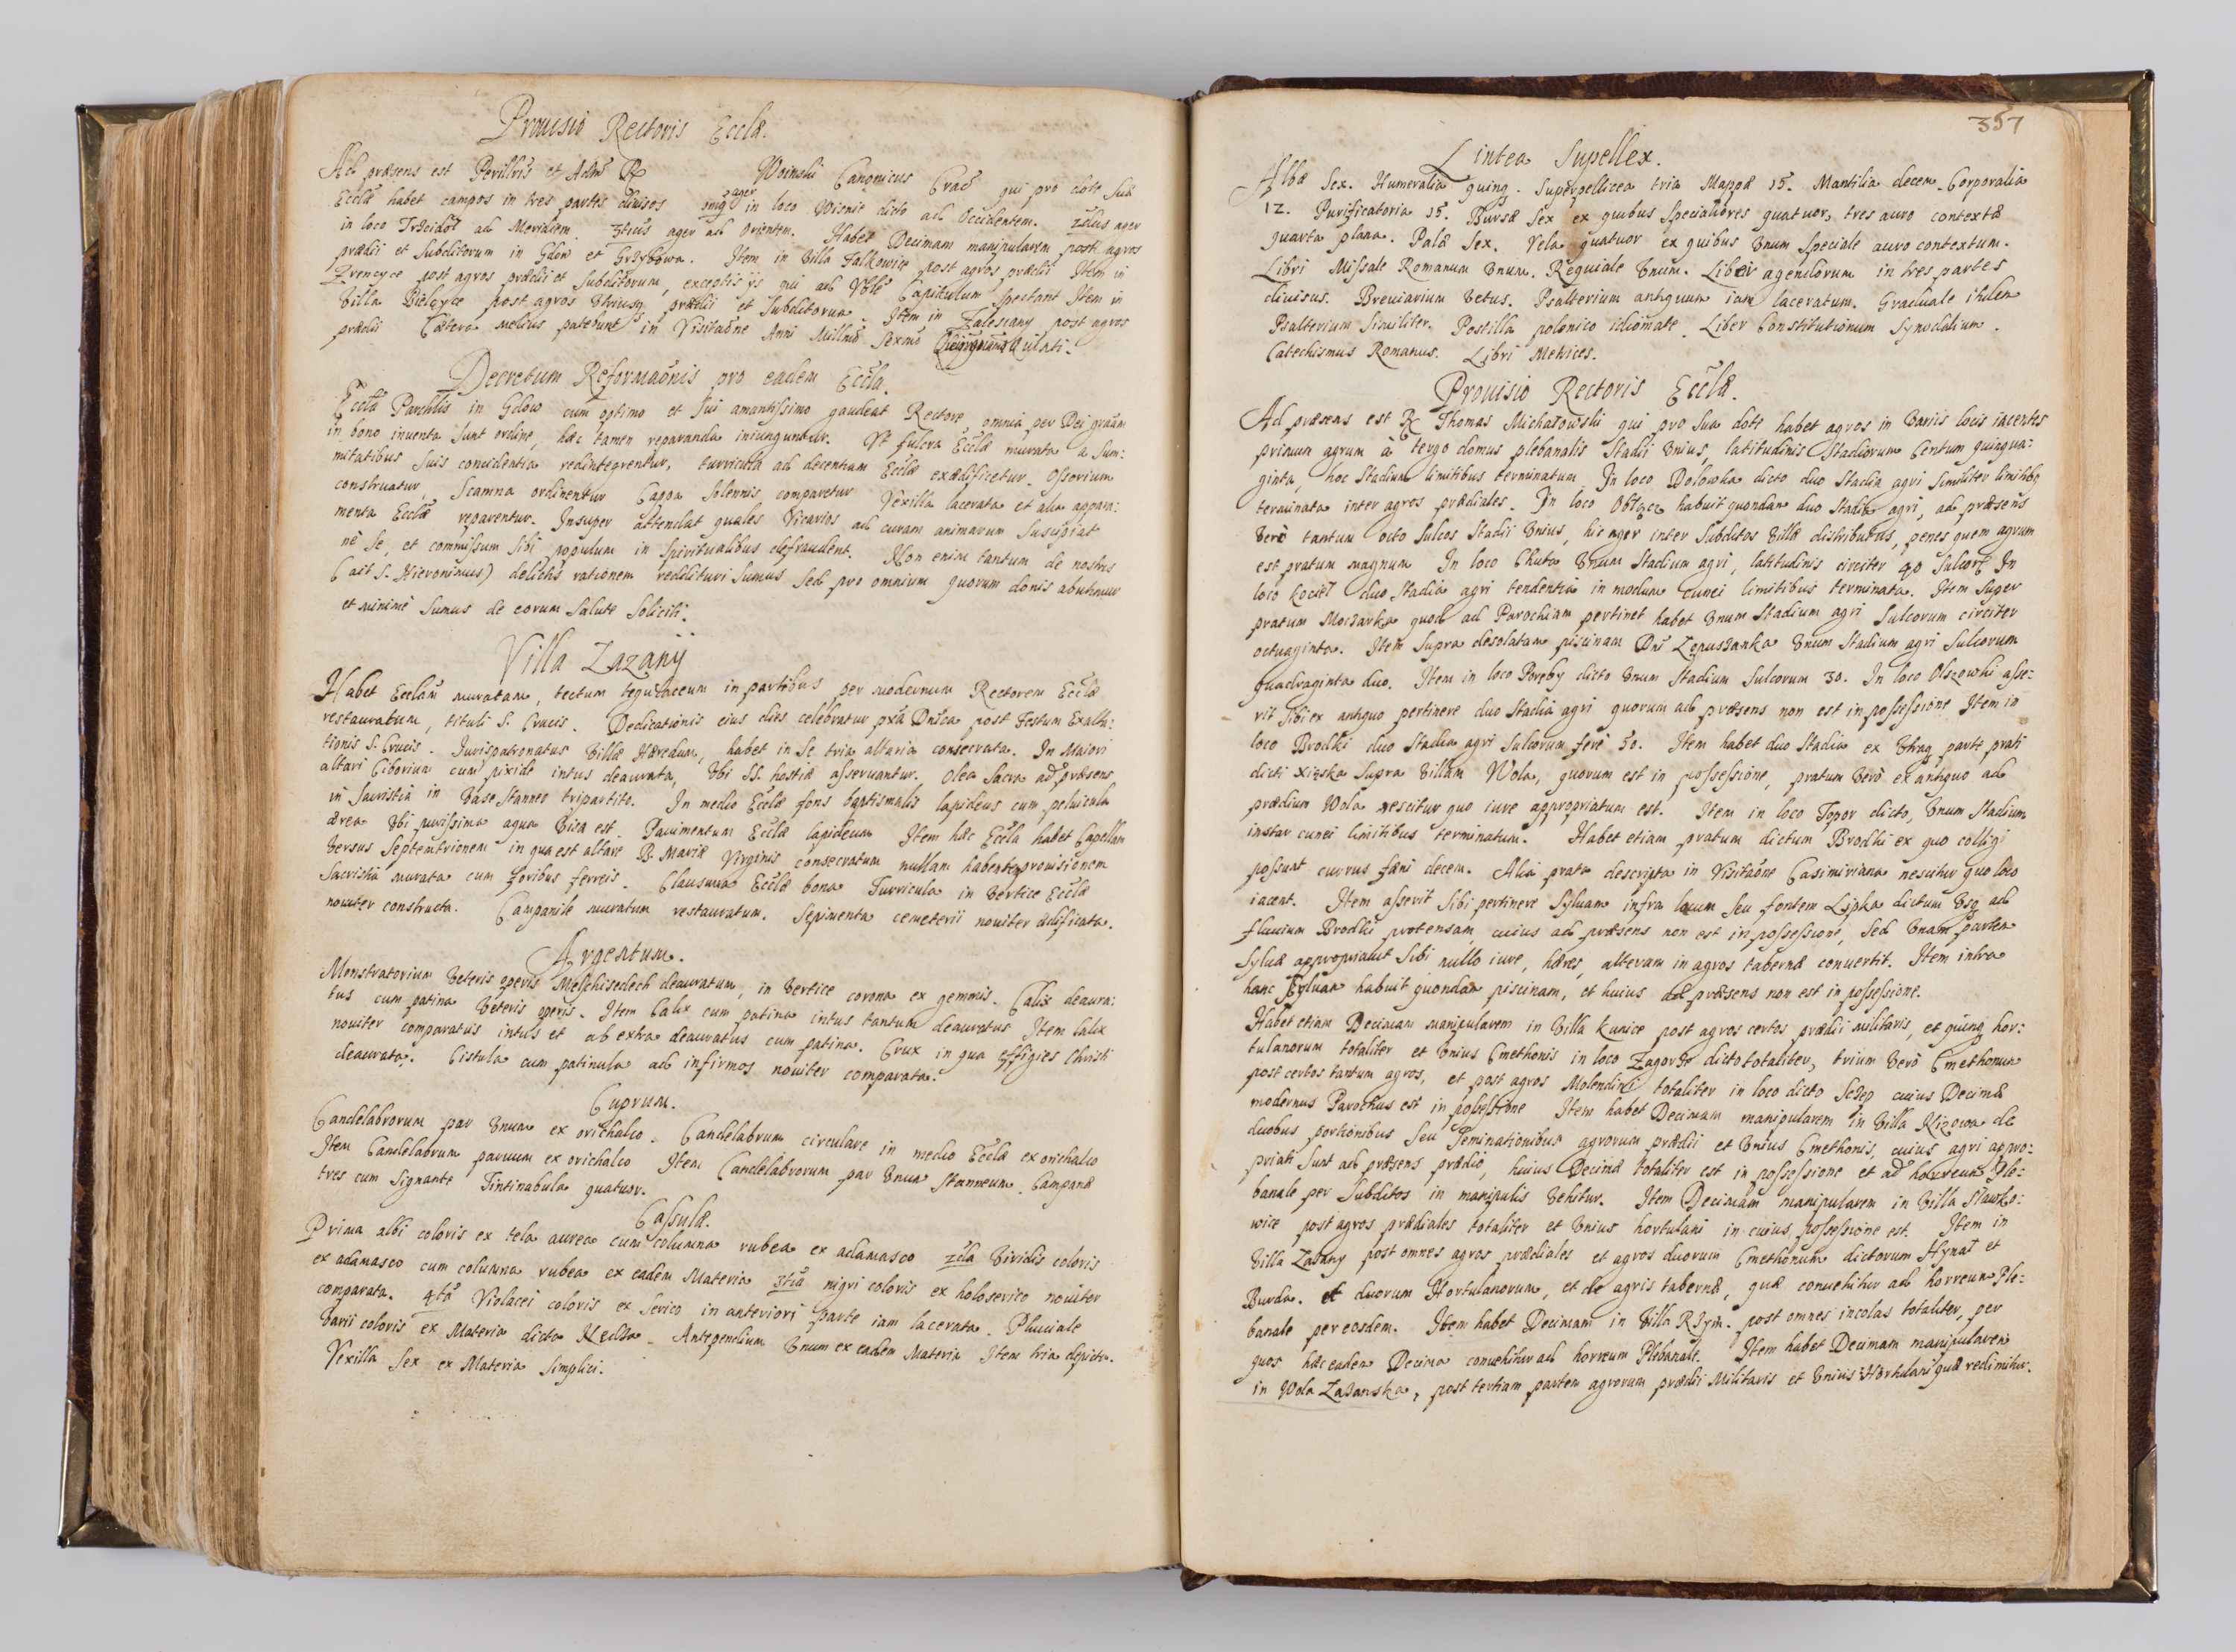 Prouisio Rectoris Eccłæ.
Ad præsens est Perillris et Adms R Woinski Canonicus Crac̃ qui pro dote suæ
Eccłæ habet campos in tres partes diuisos ager in loco Wisnie dicto ad Occidentem. 2dus ager
in loco ad Meridiem 3tius ager ad Orientem. Habet Decimam manipularem post agros
prædii et Subditorum in Gdow et Grzybowa. Item in Villa Falkowice post agros prædii Item in
Zrencyce post agros prædii et subditorum, exceptis ijs qui ad Capitulum spectant Item in
Villa post agros Vtriusq prædii et Subditorum. Item in Zalesiany post agros
prædii Cætera melius patebunt in Visitaõne Anni Millmo Sexmo
Decretum Reformaõnis pro eadem Eccła.
Eccła Parchlis in Gdow cum optimo et sui amantissimo gaudeat Rectore omnia per Dei grãam
in bono inuenta sunt ordine, hæc tamen reparanda iniunguntur. Vt fulcra Eccłæ murata a sum:
mitatibus suis concidentia redintegrentur, turricula ad decentiam Eccłæ exædificetur. Ossorium
construatur, Scamna ordinentur Cappa solennis comparetur Vexilla lacerata et alia appara:
menta Eccłæ reparentur. Insuper attendat quales Vicarios ad curam animarum suscipiat
nè se, et commissum sibi populum in spiritualibus defraudent. Non enim tantum de nostris
(ait S. Hieronimus) delictis rationem reddituri sumus sed pro omnium quorum donis abutimur
et minimè sumus de eorum salute soliciti.
Villa Zazany
Habet Ecclam muratam, tectum tegulaceum in partibus per modernum Rectorem Eccłæ
restauratum, tituli S. Crucis. Dedicationis eius dies celebratur pxa Dnica post Festum Exalta:
tionis S. Crucis. Iurispatronatus Villæ Hæredum, habet in se tria altaria consecrata. In Maiori
altari Ciborium cum pixide intus deaurata, Vbi SS. hostiæ asseruantur. Olea sacra ad præsens
in Sacristia in Vase stanneo tripartito. In medio Eccłæ fons baptismalis lapideus cum peluicula
ærea Vbi purissima aqua Visa est. Pauimentum Eccłæ lapideum Item hæc Eccła habet Capellam
Versus Septentrionem in qua est altare B. Mariæ Virginis consecratum nullam habens prouisionem
Sacristia murata cum foribus ferreis. Clausura Eccłæ bona Turricula in Vertice Eccłæ
nouiter constructa. Campanile muratum restauratum. Sepimenta cemeterii nouiter ædificata.
Argentum.
Monstratorium Veteris operis Melchisedech deauratum, in Vertice corona ex gemmis. Calix deaura:
tus cum patina Veteris operis. Item Calix cum patina intus tantum deauratus Item Calix
nouiter comparatus intus et ab extra deauratus cum patina. Crux in qua effigies Christi
deaurata. Cistula cum patinula ad infirmos nouiter comparata.
Cuprum.
Candelabrorum par Vnum ex orichalco. Candelabrum circulare in medio Eccłæ ex orichalco
Item Candelabrum paruum ex orichalco Item Candelabrorum par Vnum stanneum. Campanæ
tres cum signante Tintinabula quatuor.
Casulæ.
Prima albi coloris ex tela aurea cum columna rubea ex adamasco 2da Viridis coloris
ex adamasco cum columna rubea ex eadem Materia 3tia nigri coloris ex holoserico nouiter
comparata. 4ta Violacei coloris ex serico in anteriori parte iam lacerata. Pluuiale
Varii coloris ex Materia dicta. Antependium Vnum ex eadem Materia Item tria depicta.
Vexilla sex ex Materia simplici.
357
Lintea Supellex.
Albæ sex. Humeralia quinq. Superpellicea tria Mappæ 15. Mantilia decem. Corporalia
12. Purificatoria 15. Bursæ sex ex quibus specialiores quatuor, tres auro contextæ
quarta plana. Palæ sex. Vela quatuor ex quibus Vnum speciale auro contextum.
Libri Missale Romanum Vnum. Requiale Vnum. Liber agendorum in tres partes
diuisus. Breuiarium Vetus. Psalterium antiquum iam laceratum. Graduale itidem
Psalterium similiter. Postilla polonico idiomate. Liber Constitutionum Synodalium.
Catechismus Romanus. Libri Metrices.
Prouisio Rectoris Eccłæ.
Ad præsens est R Thomas Michałowski qui pro sua dote habet agros in Variis locis iacentes
primum agrum à tergo domus plebanalis Stadii Vnius, latitudinis Stadiorum Centum quinqua:
ginta, hoc Stadium limitibus terminatum In loco Dolowka dicto duo Stadia agri similiter limitibq
terminata inter agros prædiales. In loco habuit quondam duo Stadia agri, ad præsens
Verò tantum octo sulcos Stadii Vnius, hic ager inter subditos Villæ distributus, penes quem agrum
est pratum magnum In loco Chuta Vnum Stadium agri, latitudinis circiter 40 sulcor In
loco kocieł duo Stadia agri tendentia in modum cunei limitibus terminata. Item super
pratum Moczarka quod ad Parochiam pertinet habet Vnum Stadium agri sulcorum circiter
octuaginta. Item supra desolatam piscinam Dni Lapuszanka Vnum Stadium agri sulcorum
quadraginta duo. Item in loco Poręby dicto Vnum Stadium sulcorum 30. In loco Olszowki asse:
rit sibi ex antiquo pertinere duo Stadia agri quorum ad præsens non est in possessione Item in
loco Brodki duo Stadia agri sulcorum ferè 50. Item habet duo Stadia ex Vtraq parte prati
dicti Xięska supra Villam Wola, quorum est in possessione, pratum Verò ex antiquo ad
prædium Wola nescitur quo iure appropriatum est. Item in loco Topor dicto, Vnum Stadium
instar cunei limitibus terminatum. Habet etiam pratum dictum Brodki ex quo colligi
possunt currus fæni decem. Alia prata descripta in Visitaõne Casimiriana nescitur quo loco
iacent. Item asserit sibi pertinere syluam infra lacum seu fontem Lipka dictum Vsq ad
fluuium Brodki protensam, cuius ad præsens non est in possessione, sed Vnam partem
syluæ appropriauit sibi nullo iure, hæres, alteram in agros tabernæ conuertit. Item intra
hanc syluam habuit quondam piscinam, et huius ad præsens non est in possessione.
Habet etiam Decimam manipularem in Villa kunice post agros certos prædii militaris, et quinq hor:
tulanorum totaliter et Vnius Cmethonis in loco Zagorze dicto totaliter, trium Verò Cmethonum
post certos tantum agros, et post agros Molendini totaliter in loco dicto cuius Decimæ
modernus Parochus est in possessione Item habet Decimam manipularem in Villa Nizowa de
duobus portionibus seu seminationibus agrorum prædii et Vnius Cmethonis, cuius agri appro:
priati sunt ad præsens prædio, huius Decimæ totaliter est in possessione et ad horreum Ple:
banale per subditos in manipulis Vehitur. Item Decimam manipularem in Villa Sławko:
wice post agros prædiales totaliter et Vnius hortulani in cuius possessione est. Item in
Villa Zazany post omnes agros prædiales et agros duorum Cmethonum dictorum Hynał et
Burda. et duorum Hortulanorum, et de agris tabernæ, quæ conuehitur ad horreum Ple:
banale per eosdem. Item habet Decimam in Villa Rzym. post omnes incolas totaliter, per
quos hæc eadem Decima conuehitur ad horreum Plebanale. Item habet Decimam manipularem
in Wola Zazanska, post tertiam partem agrorum prædii Militaris et Vnius Hortulani quæ redimitur.